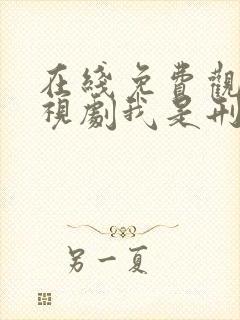 在綫免費觀
視劇我是刑
另一夏